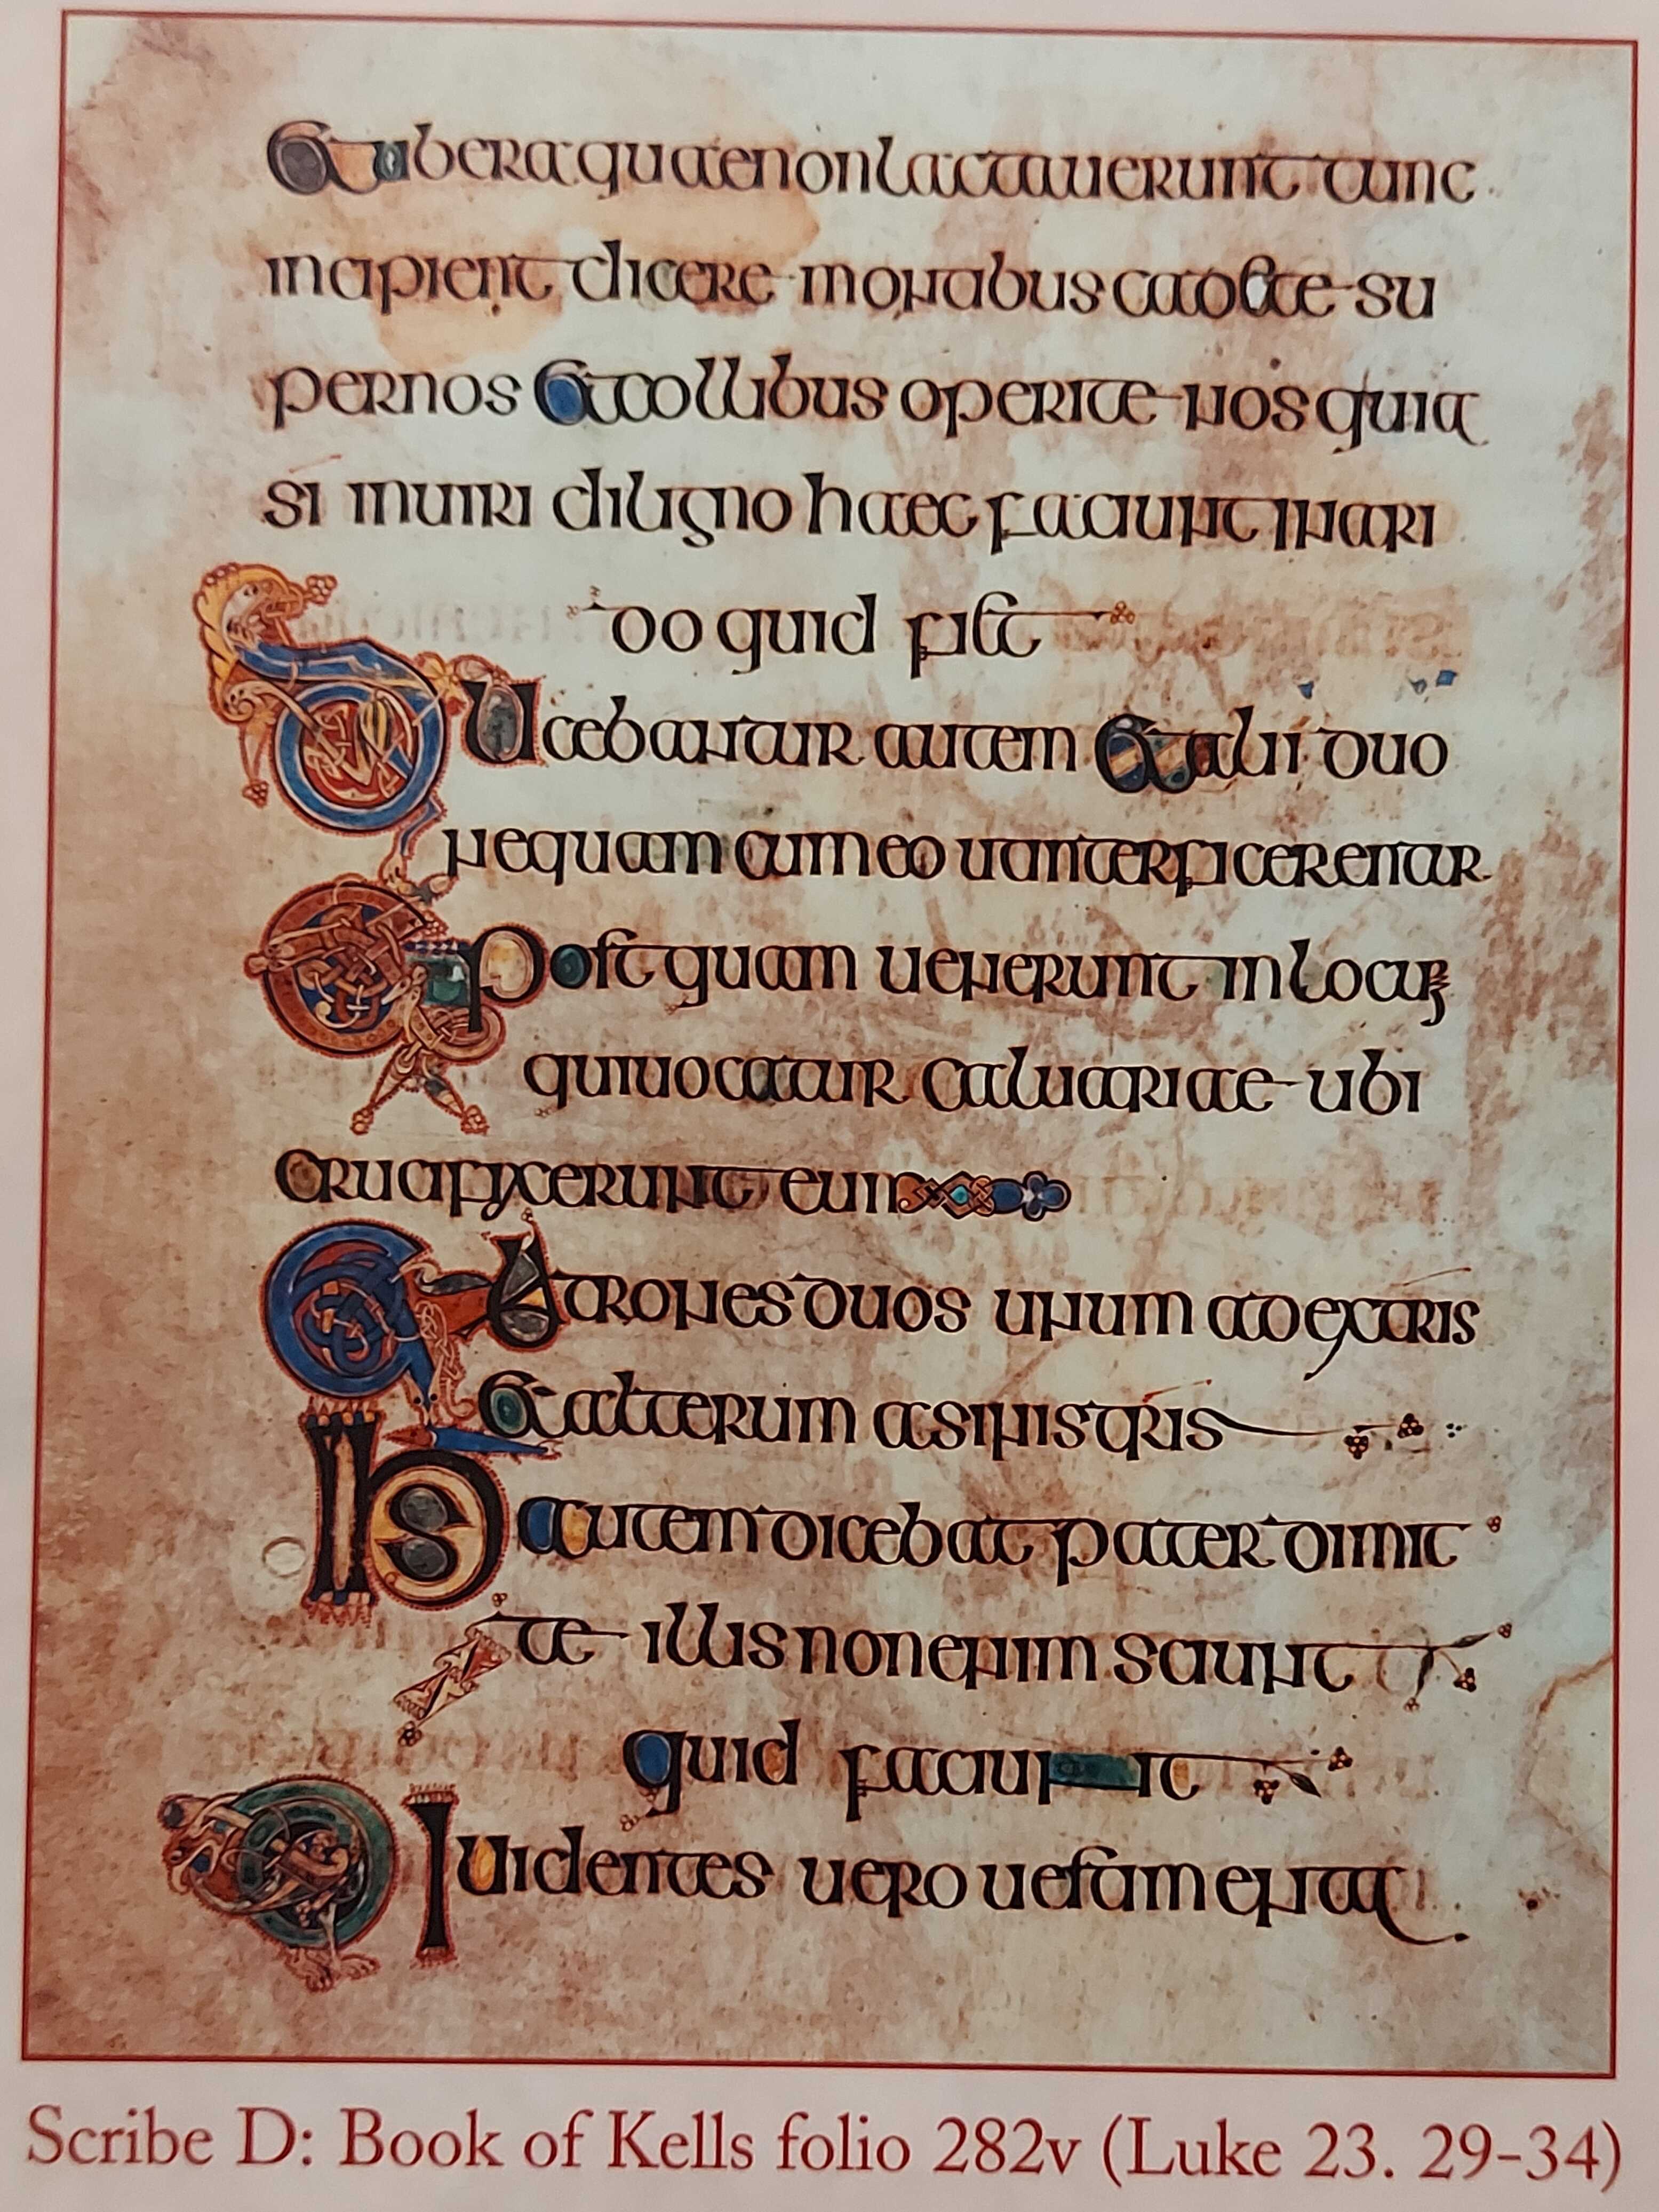 Et ubera quae non lactauerunt tunc
incipient dicere montibus cadete su
per nos et collibus operite nos quia
si inuiri di ligno haec faciunt in ari
do quid fiet
Ducebantur autem et alii duo
nequam cum eo ut interficerentur
Et postquam uenerunt in locum
qui uocatur caluariae ubi
crucifixerunt eum
Et latrones duos unum ad extris
et alterum a sinistris
ihs autem dicebat pater dimit
te illis non enim sciunt
quid faciunt
Diuidentes uero uestimenta
Scribe D: Book of Kells folio 282v (Luke 23. 29-34)